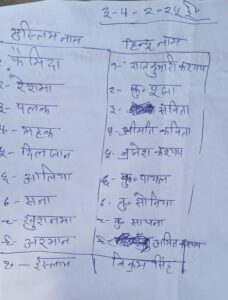 ३-५-२-२५ ई
मुस्लिम नाम हिन्दू नाम
१. फैमिदा १- राजकुमारी कश्यप
२- रेशमा २- कु० पूजा
३- पलक ३- सविता
४- महक ४- श्रीमति कविता
५- दिलजान ५- बृजेश कश्यप
६- आलिया ६- कु० पायल
७- सना ७- कु० सोनिया
८- खुशनमा ८- कु० साधना
९- अरमान ९- अमित कश्यप
१०- ईस्लाम विक्रम सिंह